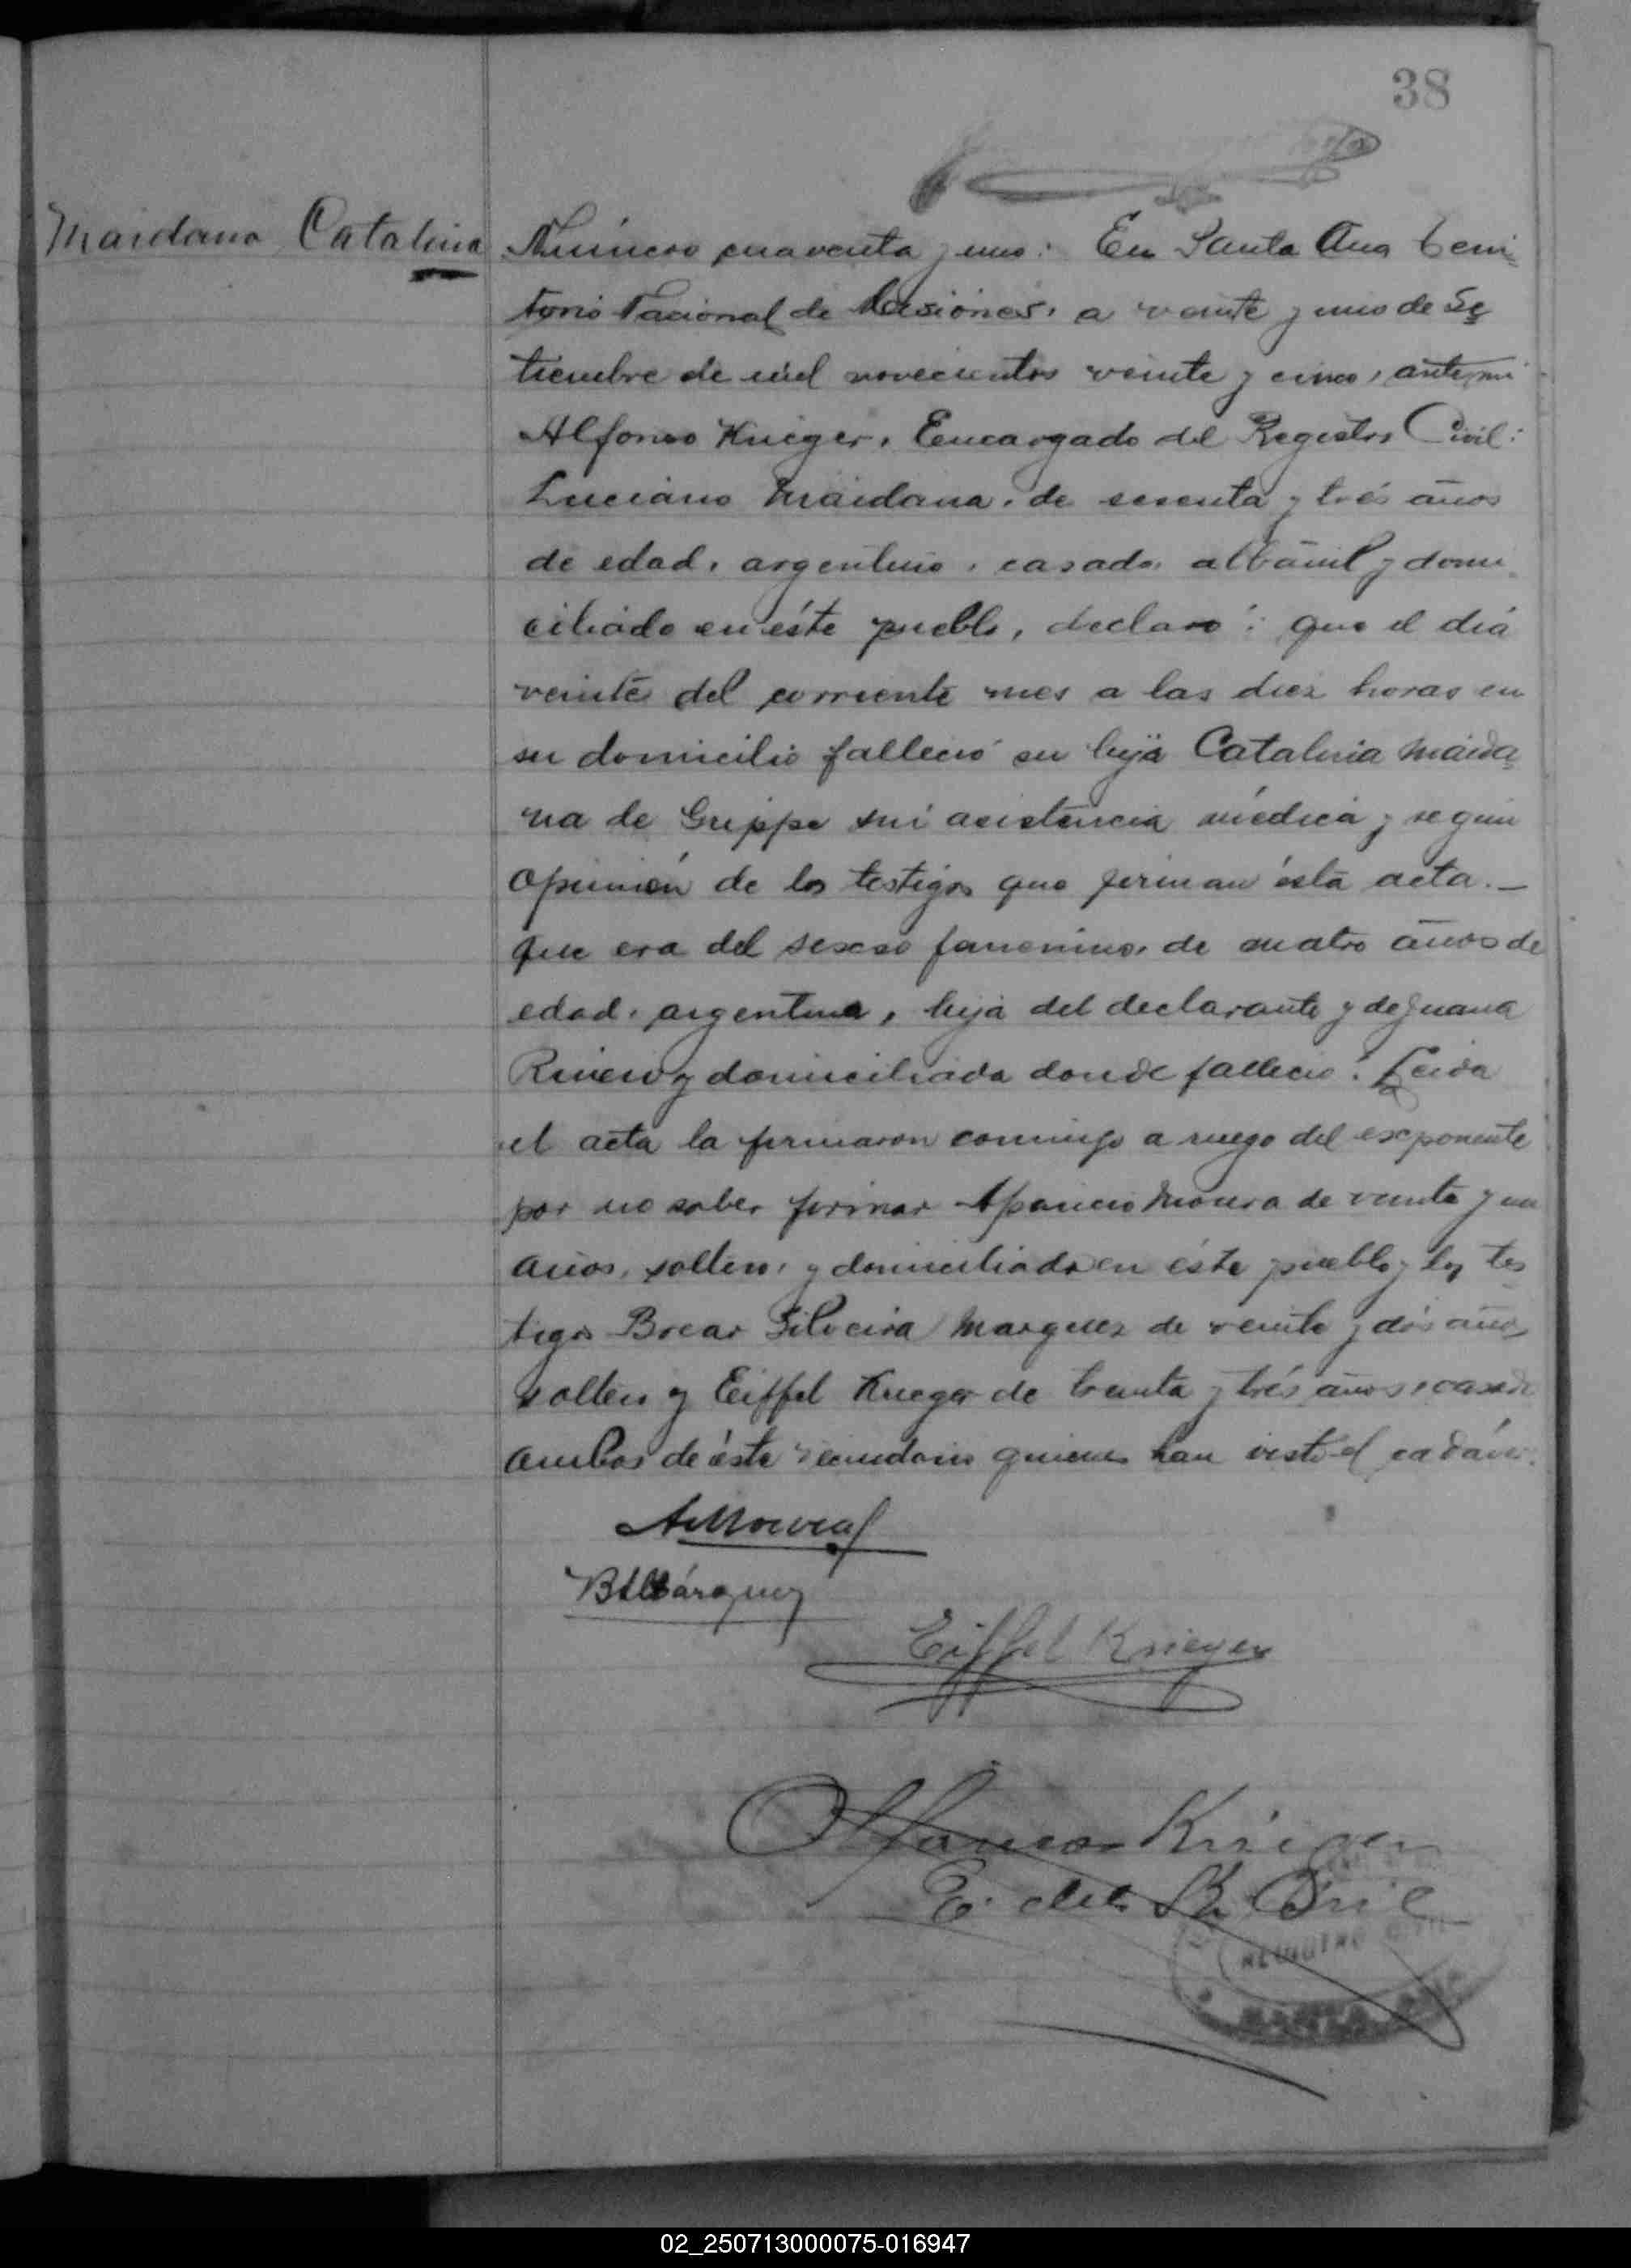 38
Maidana Catalina
Número cuarenta y uno: En Santa Ana Terri-
torio Nacional de Misiones, a veinte y uno de Se
tiembre de mil novecientos veinte y cinco, ante mi
Alfonso Krieger, Encargado del Registro Civil:
Luciano Maidana, de sesenta y trés años
de edad, argentino, casado, albañil y domi-
ciliado en éste pueblo, declaró: que el día
veinte del corriente mes a las diez horas en
su domicilio falleció su hija Catalina Maida
na de Grippe sin asistencia médica y según
opinión de los testigos que firman ésta acta.—
que era del sexso femenino, de cuatro años de
edad, argentina, hija del declarante y de Juana
Rivero y domiciliada donde falleció: Leida
el acta la firmaron conmigo a ruego del exponente
por no saber firmar Aparicio Moura de veinte y un
años, soltero, y domiciliado en éste pueblo y los tes
tigos Bocar Silveira Marquez de veinte y dós años
soltero y Eiffel Krieger de treinta y trés años, casado
ambos de ésta vecindario quienes han visto el cadáver.
AMoura
BSMárquez
Eiffel Krieger
Alfonso Krieger
E. del R. Civil
REGISTRO CIVIL
SANTA ANA
02_250713000075-016947